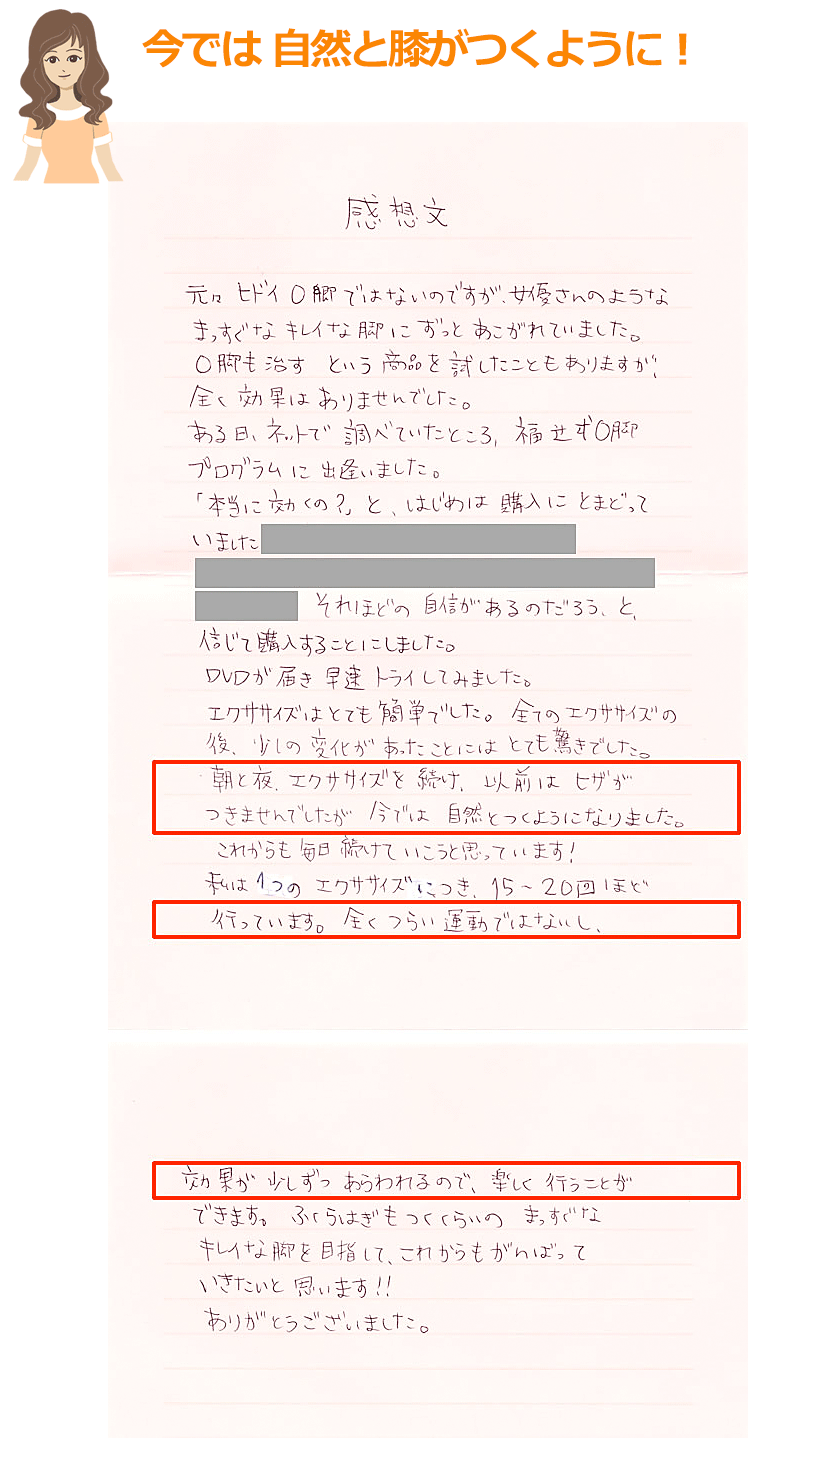 今では 自然と膝がつくように！
感想文
元々 ヒドイ O脚ではないのですが、女優さんのような
まっすぐな キレイな脚に ずっと あこがれていました。
O脚も治す という 商品を 試したこともありますが、
全く 効果は ありませんでした。
ある日、ネットで 調べていたところ、福辻式O脚
プログラムに 出逢いました。
「本当に効くの?」と、はじめは 購入に とまどって
いました
それほどの 自信があるのだろう、と、
信じて購入することにしました。
DVDが 届き 早速 トライしてみました。
エクササイズはとても簡単でした。全てのエクササイズの
後、少しの 変化が あったことには とても驚きでした。
朝と夜、エクササイズを 続け、以前は ヒザが
つきませんでしたが 今では 自然とつくようになりました。
これからも 毎日 続けていこうと思っています!
私は 1つの エクササイズにつき、15～20回ほど
行っています。全く つらい 運動ではないし、
効果が 少しずつ あらわれるので、楽しく 行うことが
できます。ふくらはぎもつくくらいの まっすぐな
キレイな脚を目指して、これからもがんばって
いきたいと 思います!!
ありがとうございました。